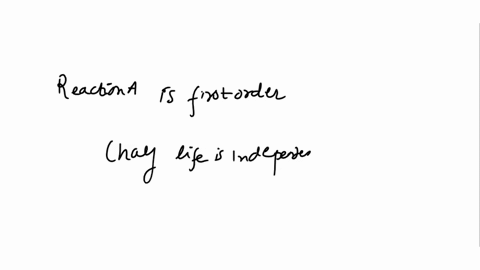 Reaction A is first order
(half life is indepen